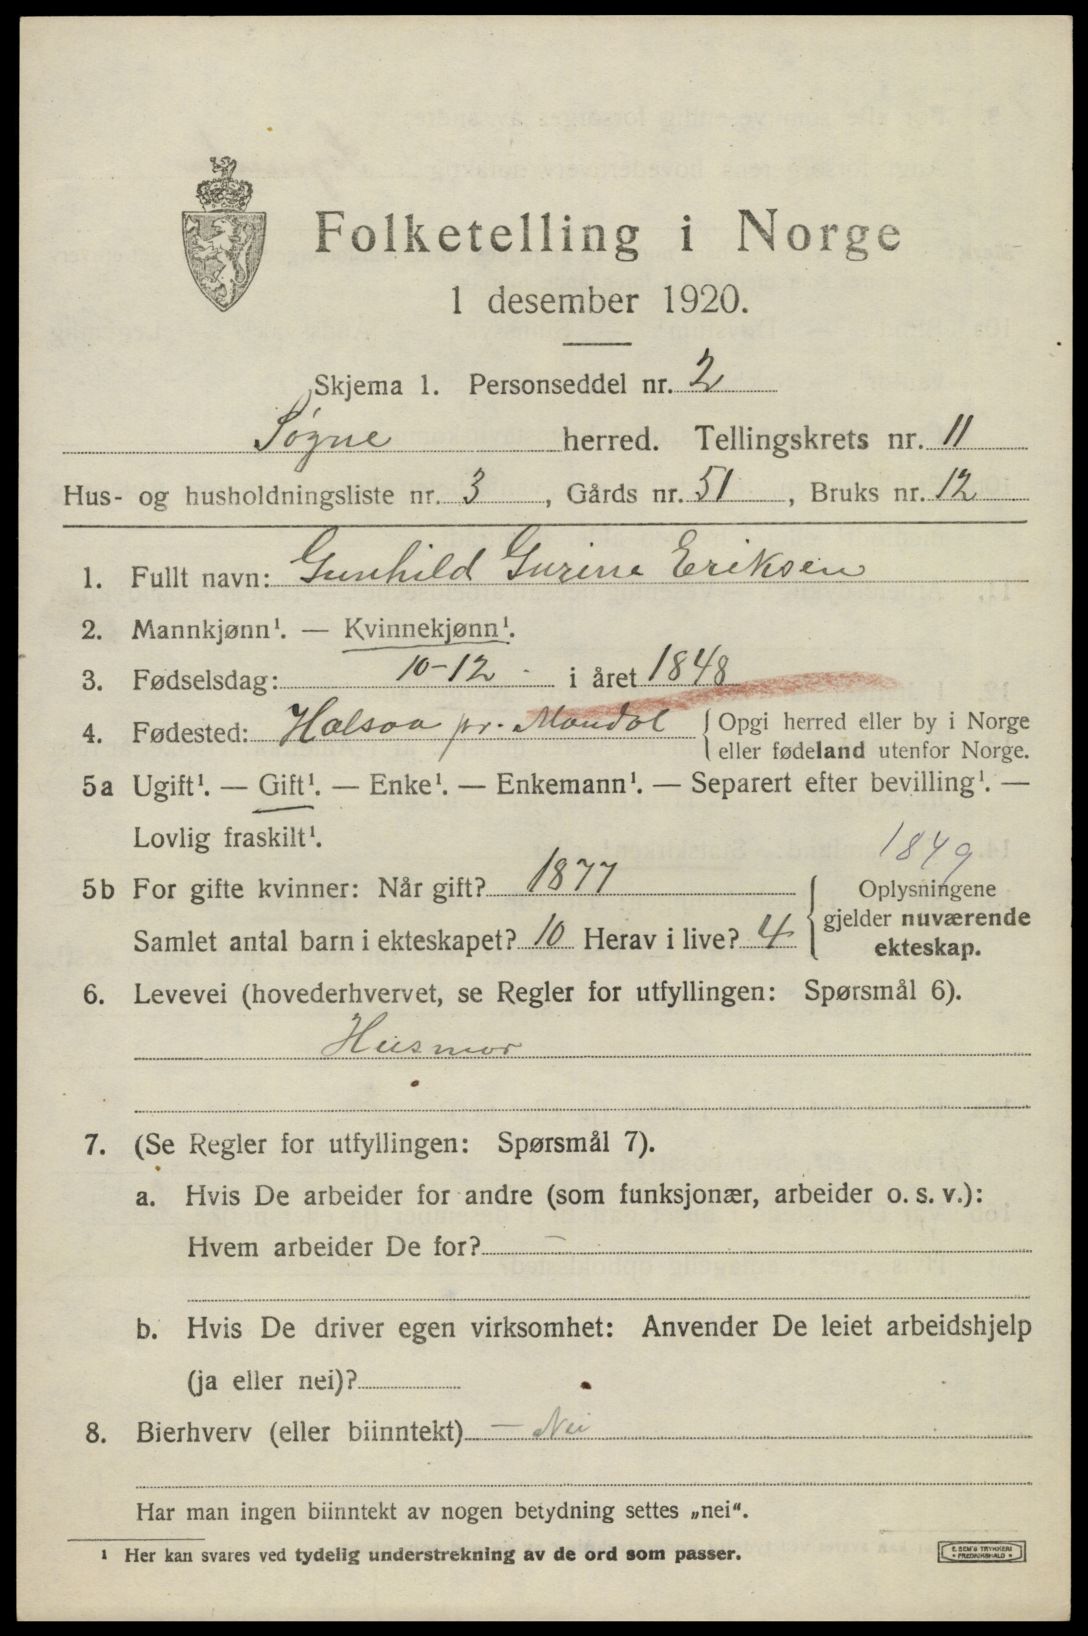 Folketelling i Norge
1 desember 1920.
Skjema 1. Personseddel nr. 2
Søgne herred. Tellingskrets nr. 11
Hus- og husholdningsliste nr. 3, Gårds nr. 51, Bruks nr. 12
1. Fullt navn: Gunhild Gurine Eriksen
2. Mannkjønn¹. — Kvinnekjønn¹.
3. Fødselsdag: 10-12 - i året 1848
4. Fødested: Halsaa pr. Mandal { Opgi herred eller by i Norge
eller fødeland utenfor Norge.
5a Ugift¹. — Gift¹. — Enke¹. — Enkemann¹. — Separert efter bevilling¹. —
Lovlig fraskilt¹.
1849
5b For gifte kvinner: Når gift? 1877 { Oplysningene
gjelder nuværende
Samlet antal barn i ekteskapet? 10 Herav i live? 4 ekteskap.
6. Levevei (hovederhvervet, se Regler for utfyllingen: Spørsmål 6).
Husmor
7. (Se Regler for utfyllingen: Spørsmål 7).
a. Hvis De arbeider for andre (som funksjonær, arbeider o. s. v.):
Hvem arbeider De for? —
b. Hvis De driver egen virksomhet: Anvender De leiet arbeidshjelp
(ja eller nei)?
8. Bierhverv (eller biinntekt) — Nei
Har man ingen biinntekt av nogen betydning settes „nei“.
¹ Her kan svares ved tydelig understrekning av de ord som passer.
E. SEM'S TRYKKERI
• FREDRIKSHALD •